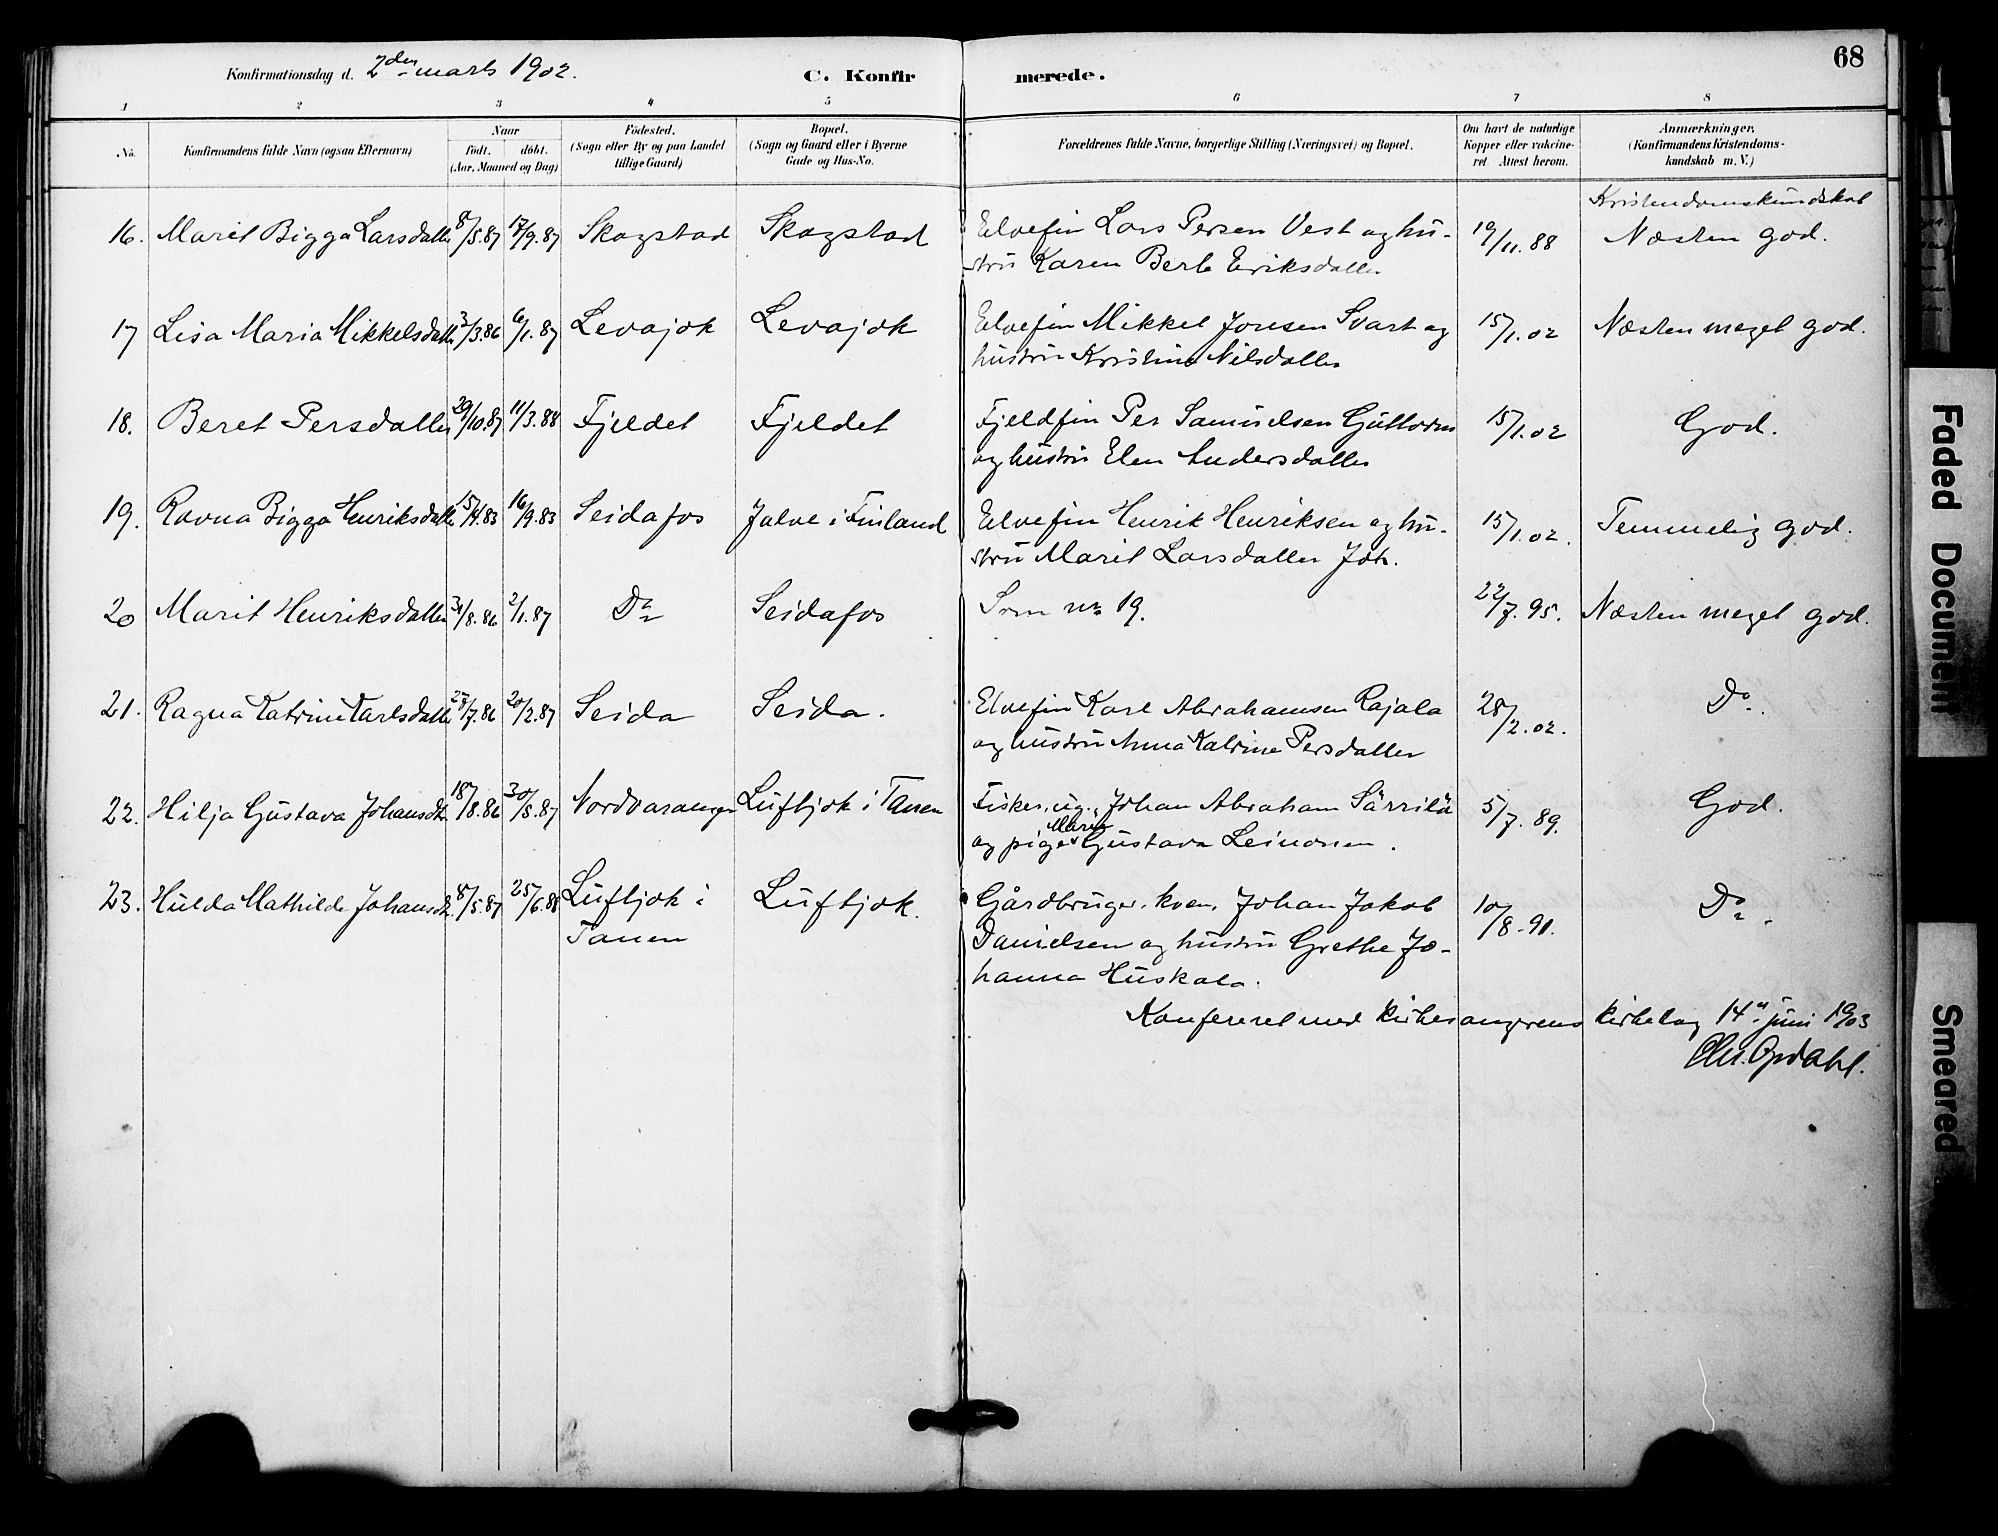 Konfirmationsdag d. 2den marts 1902.
C. Konfirmerede.
68
1 2 3 4 5 6 7 8
No.
Konfirmandens fulde Navn (ogsaa Efternavn)
Naar
födt. döbt.
(Aar, Maaned og Dag)
Födested.
(Sogn eller By og paa Landet
tillige Gaard)
Bopæl.
(Sogn og Gaard eller i Byerne
Gade og Hus-No.
Forældrenes fulde Navne, borgerlige Stilling (Næringsvei) og Bopæl.
Om havt de naturlige
Kopper eller vakcine-
ret. Attest herom.
Anmærkninger.
(Konfirmandens Kristendoms-
kundskab m. V.)
Kristendomskundskab
16. Marit Bigga Larsdatter 8/5.87 17/9.87 Skogstad Skogstad Elvefin Lars Persen Vest og hu- 19/11.88 Næsten god.
stru Karen Berit Eriksdatter
17 Lisa Maria Mikkelsdatter 3/3.86 6/1.87 Levajok Levajok Elvefin Mikkel Jonsen Svart og 15/1.02 Næsten meget god.
hustru Kristine Nilsdatter
18. Beret Persdatter 29/10.87 11/3.88 Fjeldet Fjeldet Fjeldfin Per Samuelsen Guttorm 15/1.02 God.
og hustru Elen Andersdatter
19. Ravna Bigga Henriksdatter 15/4.83 16/9.83 Seidafos Jalve i Finland Elvefin Henrik Henriksen og hu- 15/1.02. Temmelig god.
stru Marit Larsdatter Joh.
20 Marit Henriksdatter 31/8.86 2/1.87 Do Seidafos Som no 19. 22/7.95. Næsten meget god.
21. Ragna Katrine Karlsdatter 27/7.86 20/2.87 Seida Seida. Elvefin Karl Abrahamsen Rajala 28/2.02. Do.
og hustru Anna Katrine Persdatter
22. Hilja Gustava Johansdtr. 18/8.86 30/5.87 Nordvaranger Luftjok i Tanen Fisker, ug., Johan Abraham Särrilä 5/7.89. God.
og pige Maria Gustava Leinonen.
23. Hulda Mathilde Johansdtr. 8/5.87 25/6.88 Luftjok i Luftjok. Gårdbruger, kven, Johan Jakob 10/8.91. Do.
Tanen Danielsen og hustru Grethe Jo-
hanna Huskala.
Konfereret med kirkesangerens kirkebog 14de juni 1903
Chr. Opdahl.
Faded Document
Smeared